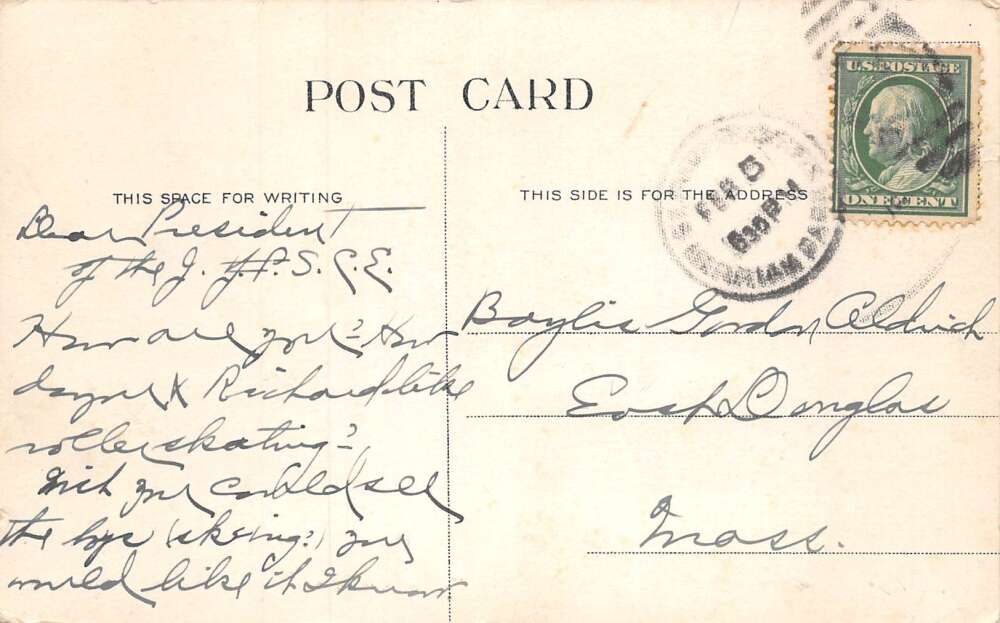 POST CARD
U.S. POSTAGE
ONE CENT
FEB 5
530 PM
THIS SPACE FOR WRITING
Dear President
of the J. Y.P.S.C.E.
How are you? How
do you & Richard like
roller skating?
Wish you could see
the boys (skeeing?) you
would like it I know
THIS SIDE IS FOR THE ADDRESS
Baylis Gordon Aldrich
East Douglas
Mass.